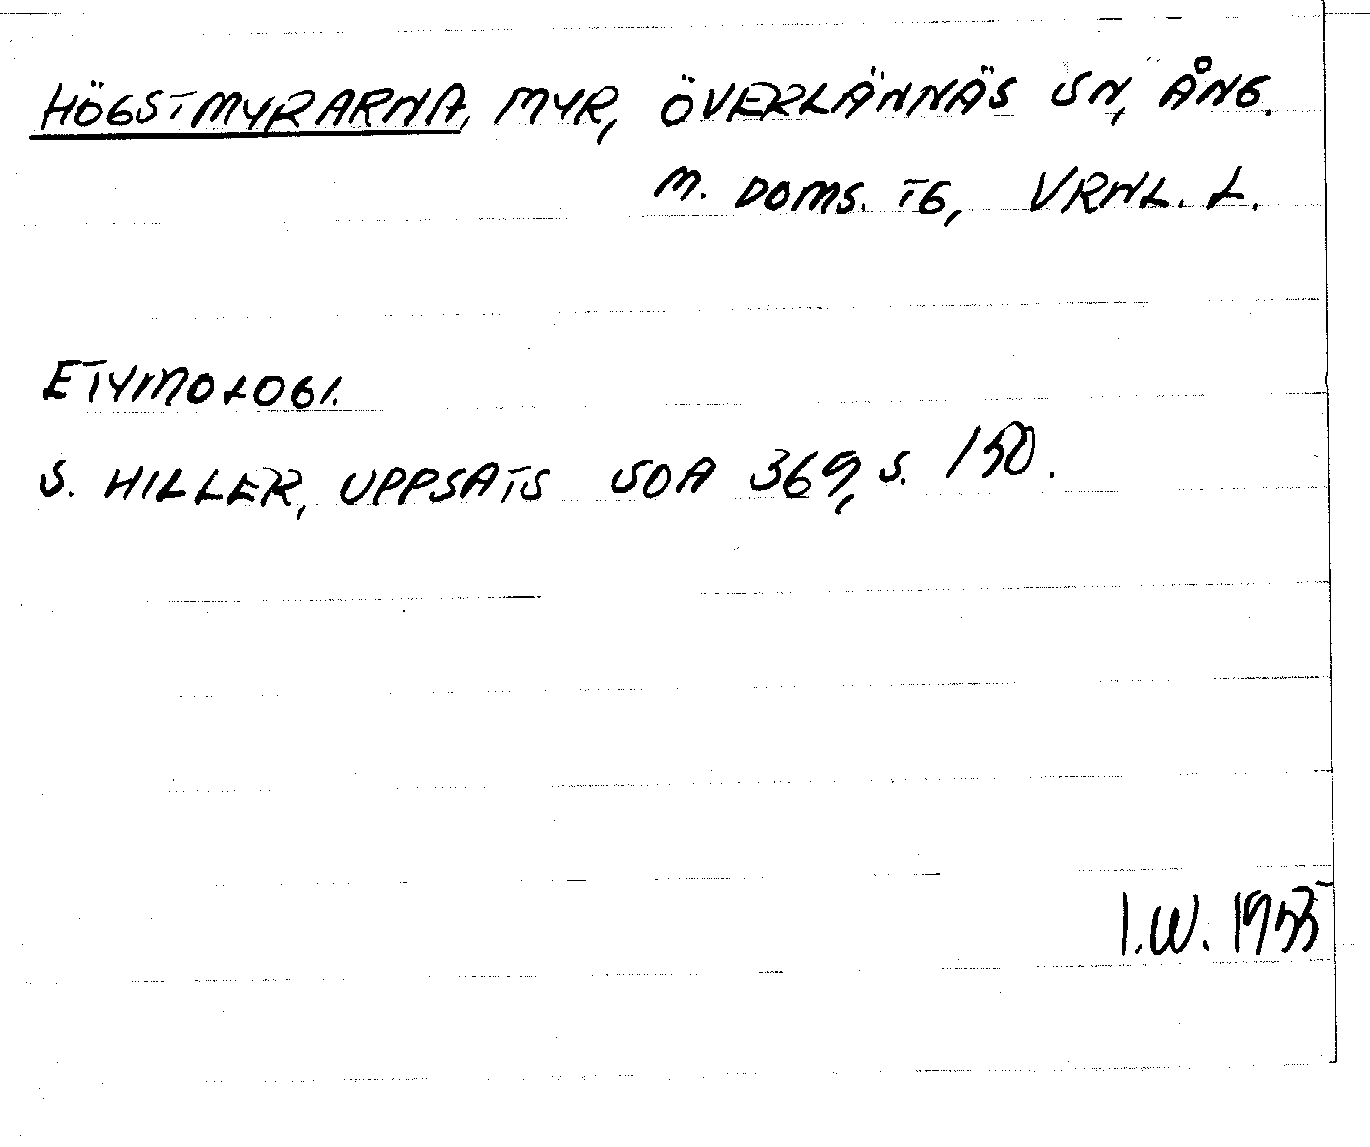 HÖGSTMYRARNA, MYR, ÖVERLÄNNÄS SN, ÅNG.
M. DOMS. TG, VRNL. L.
ETYMOLOGI.
S. HILLER, UPPSATS SOA 369, S. 150.
I.W. 1955